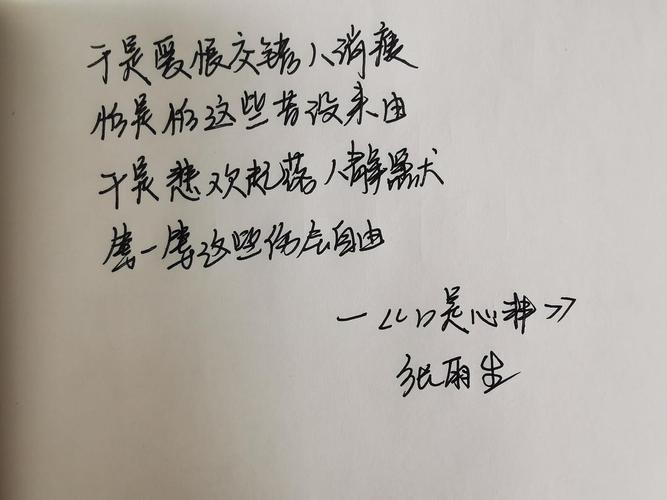 于是爱恨交错人消瘦
怕是怕这些苦没来由
于是悲欢起落人静默
等一等这些伤会自由
—《口是心非》
张雨生